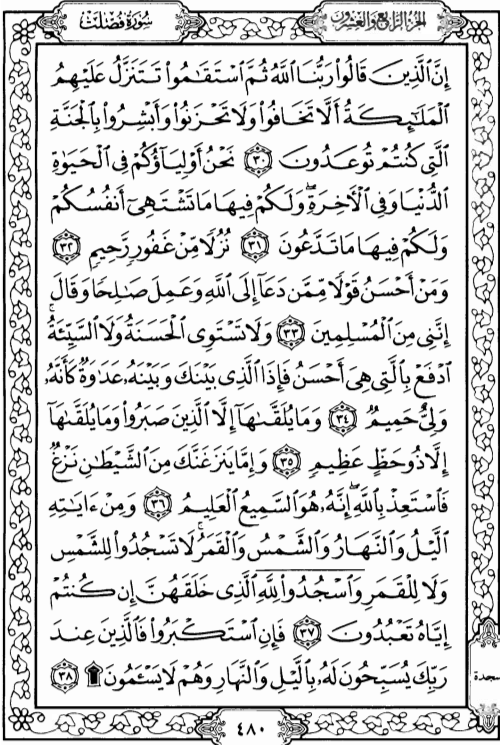 سُورَةُ فُصِّلَتْ
الجزء الرابع والعشرون
إِنَّ ٱلَّذِينَ قَالُوا۟ رَبُّنَا ٱللَّهُ ثُمَّ ٱسْتَقَٰمُوا۟ تَتَنَزَّلُ عَلَيْهِمُ
ٱلْمَلَٰٓئِكَةُ أَلَّا تَخَافُوا۟ وَلَا تَحْزَنُوا۟ وَأَبْشِرُوا۟ بِٱلْجَنَّةِ
ٱلَّتِى كُنتُمْ تُوعَدُونَ ٣٠ نَحْنُ أَوْلِيَآؤُكُمْ فِى ٱلْحَيَوٰةِ
ٱلدُّنْيَا وَفِى ٱلْءَاخِرَةِ ۖ وَلَكُمْ فِيهَا مَا تَشْتَهِىٓ أَنفُسُكُمْ
وَلَكُمْ فِيهَا مَا تَدَّعُونَ ٣١ نُزُلًا مِّنْ غَفُورٍ رَّحِيمٍ ٣٢
وَمَنْ أَحْسَنُ قَوْلًا مِّمَّن دَعَآ إِلَى ٱللَّهِ وَعَمِلَ صَٰلِحًا وَقَالَ
إِنَّنِى مِنَ ٱلْمُسْلِمِينَ ٣٣ وَلَا تَسْتَوِى ٱلْحَسَنَةُ وَلَا ٱلسَّيِّئَةُ ۚ
ٱدْفَعْ بِٱلَّتِى هِىَ أَحْسَنُ فَإِذَا ٱلَّذِى بَيْنَكَ وَبَيْنَهُۥ عَدَٰوَةٌ كَأَنَّهُۥ
وَلِىٌّ حَمِيمٌ ٣٤ وَمَا يُلَقَّىٰهَآ إِلَّا ٱلَّذِينَ صَبَرُوا۟ وَمَا يُلَقَّىٰهَآ
إِلَّا ذُو حَظٍّ عَظِيمٍ ٣٥ وَإِمَّا يَنزَغَنَّكَ مِنَ ٱلشَّيْطَٰنِ نَزْغٌ
فَٱسْتَعِذْ بِٱللَّهِ ۖ إِنَّهُۥ هُوَ ٱلسَّمِيعُ ٱلْعَلِيمُ ٣٦ وَمِنْ ءَايَٰتِهِ
ٱلَّيْلُ وَٱلنَّهَارُ وَٱلشَّمْسُ وَٱلْقَمَرُ ۚ لَا تَسْجُدُوا۟ لِلشَّمْسِ
وَلَا لِلْقَمَرِ وَٱسْجُدُوا۟ لِلَّهِ ٱلَّذِى خَلَقَهُنَّ إِن كُنتُمْ
إِيَّاهُ تَعْبُدُونَ ٣٧ فَإِنِ ٱسْتَكْبَرُوا۟ فَٱلَّذِينَ عِندَ
رَبِّكَ يُسَبِّحُونَ لَهُۥ بِٱلَّيْلِ وَٱلنَّهَارِ وَهُمْ لَا يَسْـَٔمُونَ ۩ ٣٨
سجدة
٤٨٠